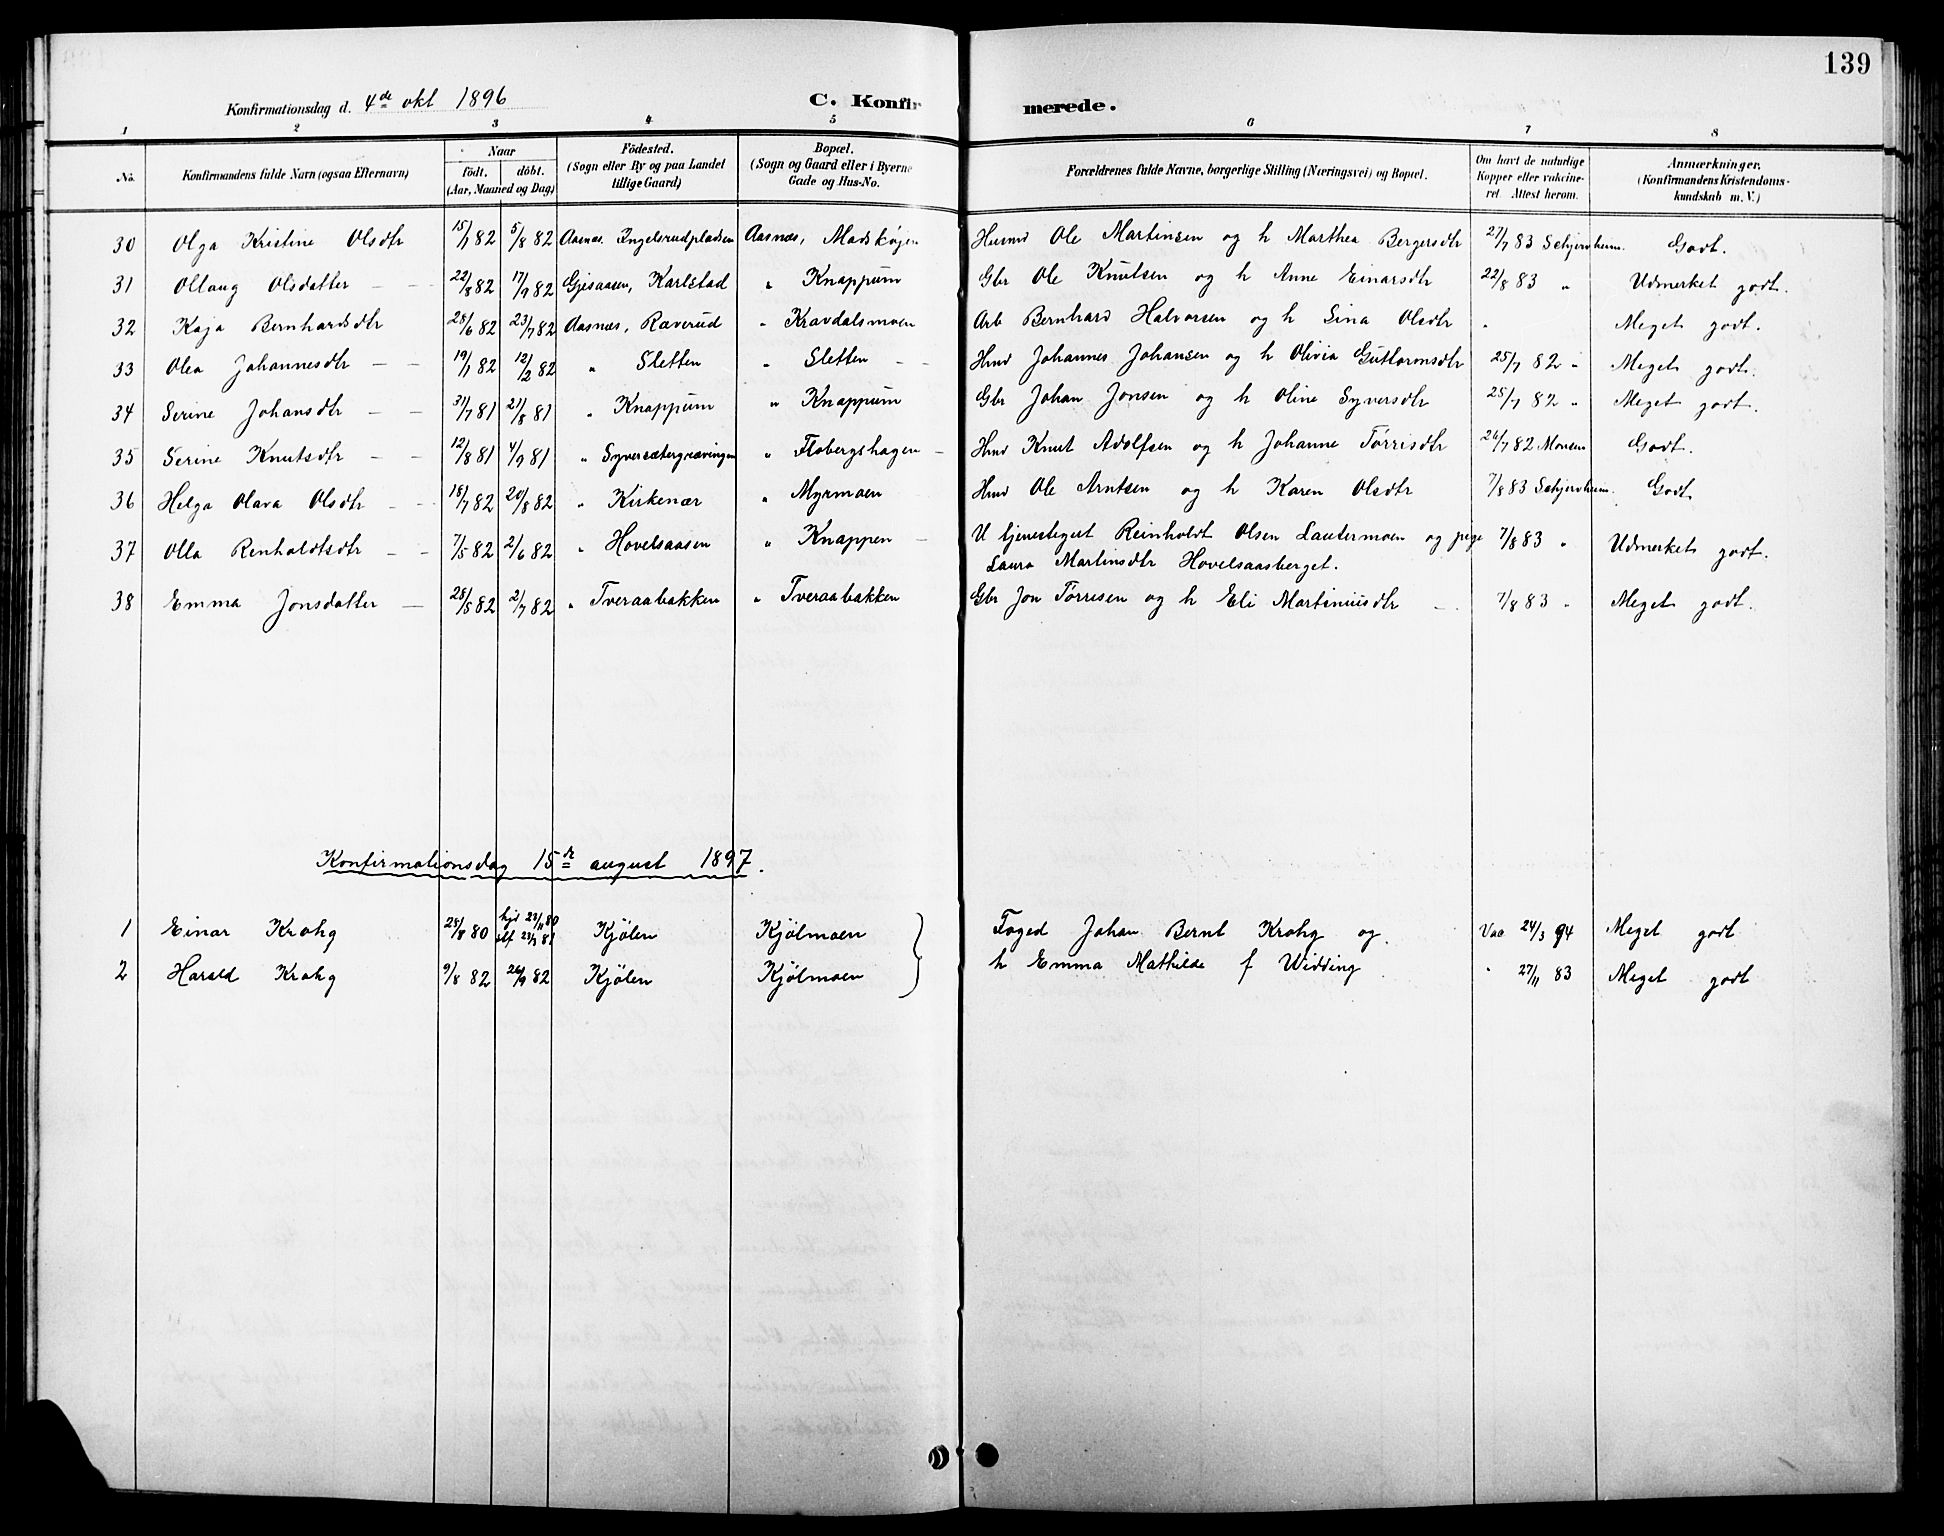 139
Konfirmationsdag d. 4de okt 1896 C. Konfirmerede.
1 2 3 4 5 6 7 8
No. Konfirmandens fulde Navn (ogsaa Efternavn) Naar födt. döbt. (Aar, Maaned og Dag) Födested. (Sogn eller By og paa Landet tillige Gaard) Bopæl. (Sogn og Gaard eller i Byerne Gade og Hus-No. Forældrenes fulde Navne, borgerlige Stilling (Næringsvei) og Bopæl. Om havt de naturlige Kopper eller vakcineret. Attest herom. Anmærkninger. (Konfirmandens Kristendomskundskab m. V.)
30 Olga Kristine Olsdtr 15/1 82 5/8 82 Aasnæs. Ingelsrudpladsen Aasnæs, Madskøjen Husmd Ole Martinsen og h Marthea Bergersdtr 27/7 83 Schjervheim. Godt.
31 Ollaug Olsdatter 22/8 82 17/9 82 Gjesaasen, Karlstad " Knappum Gbr Ole Knutsen og h Anne Einarsdtr 22/8 83 " Udmerket godt.
32 Kaja Bernhardsdtr 28/6 82 23/7 82 Aasnæs, Raverud " Kravdalsmoen Arb Bernhard Halvorsen og h Sina Olsdtr " Meget godt.
33 Olea Johannesdtr 19/1 82 12/2 82 " Sletten " Sletten Hmd Johannes Johansen og h Olivia Guttormsdtr 25/7 82 " Meget godt.
34 Serine Johansdtr 31/7 81 21/8 81 " Knappum " Knappum Gbr Johan Jonsen og h Oline Syversdtr 25/7 82 " Meget godt.
35 Serine Knutsdtr 12/8 81 4/9 81 " Syversætergrævingen " Flobergshagen Hmd Knut Adolfsen og h Johanne Tørrisdtr 26/7 82 Monsen Godt.
36 Helga Olava Olsdtr 18/7 82 20/8 82 " Kirkenær " Myrmoen Hmd Ole Arntsen og h Karen Olsdtr 7/8 83 Schjervheim. Godt
37 Olla Renholdtsdtr 7/5 82 2/6 82 " Hovelsaasen " Knappen U tjenestegut Reinholdt Olsen Lautermoen og pige 7/8 83 " Udmerket godt.
Laura Martinsdtr Hovelsaasberget.
38 Emma Jonsdatter 28/5 82 2/7 82 " Tveraabakken " Tveraabakken Gbr Jon Tørrisen og h Eli Martiniusdtr 7/8 83 " Meget godt.
Konfirmationsdag 15de august 1897.
1 Einar Krohg 28/8 80 hjd 23/11 80 stf 23/3 81 Kjølen Kjølmoen Foged Johan Bernt Krohg og Vac 24/3 94 Meget godt
2 Harald Krohg 9/8 82 26/9 82 Kjølen Kjølmoen h Emma Mathilde f Widding " 27/11 83 Meget godt